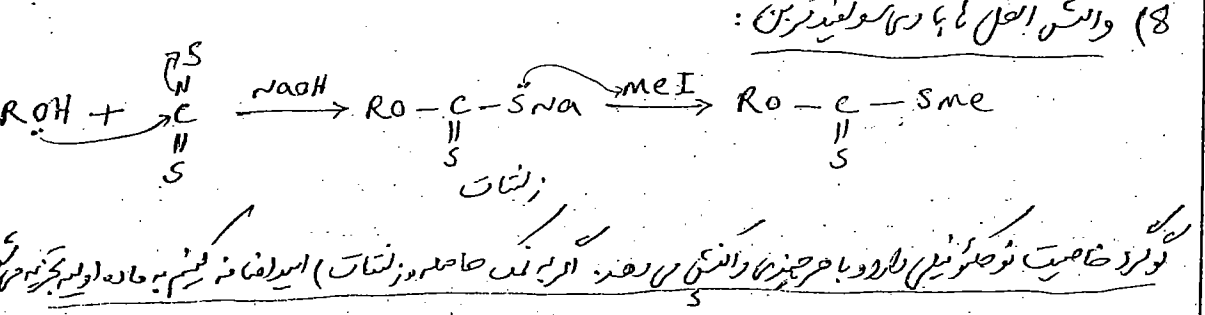 8) واکنش الکل ها با دی سولفید کربن :
S
ROH + C NaOH RO – C – S̈Na MeI RO – C – SMe
S S S
زنتات
گوگرد خاصیت نوکلئوفیلی دارد و با هر چیزی واکنش می دهد. اگر به نمک حاصله (زنتات) اسید اضافه کنیم به ماده اولیه تجزیه می